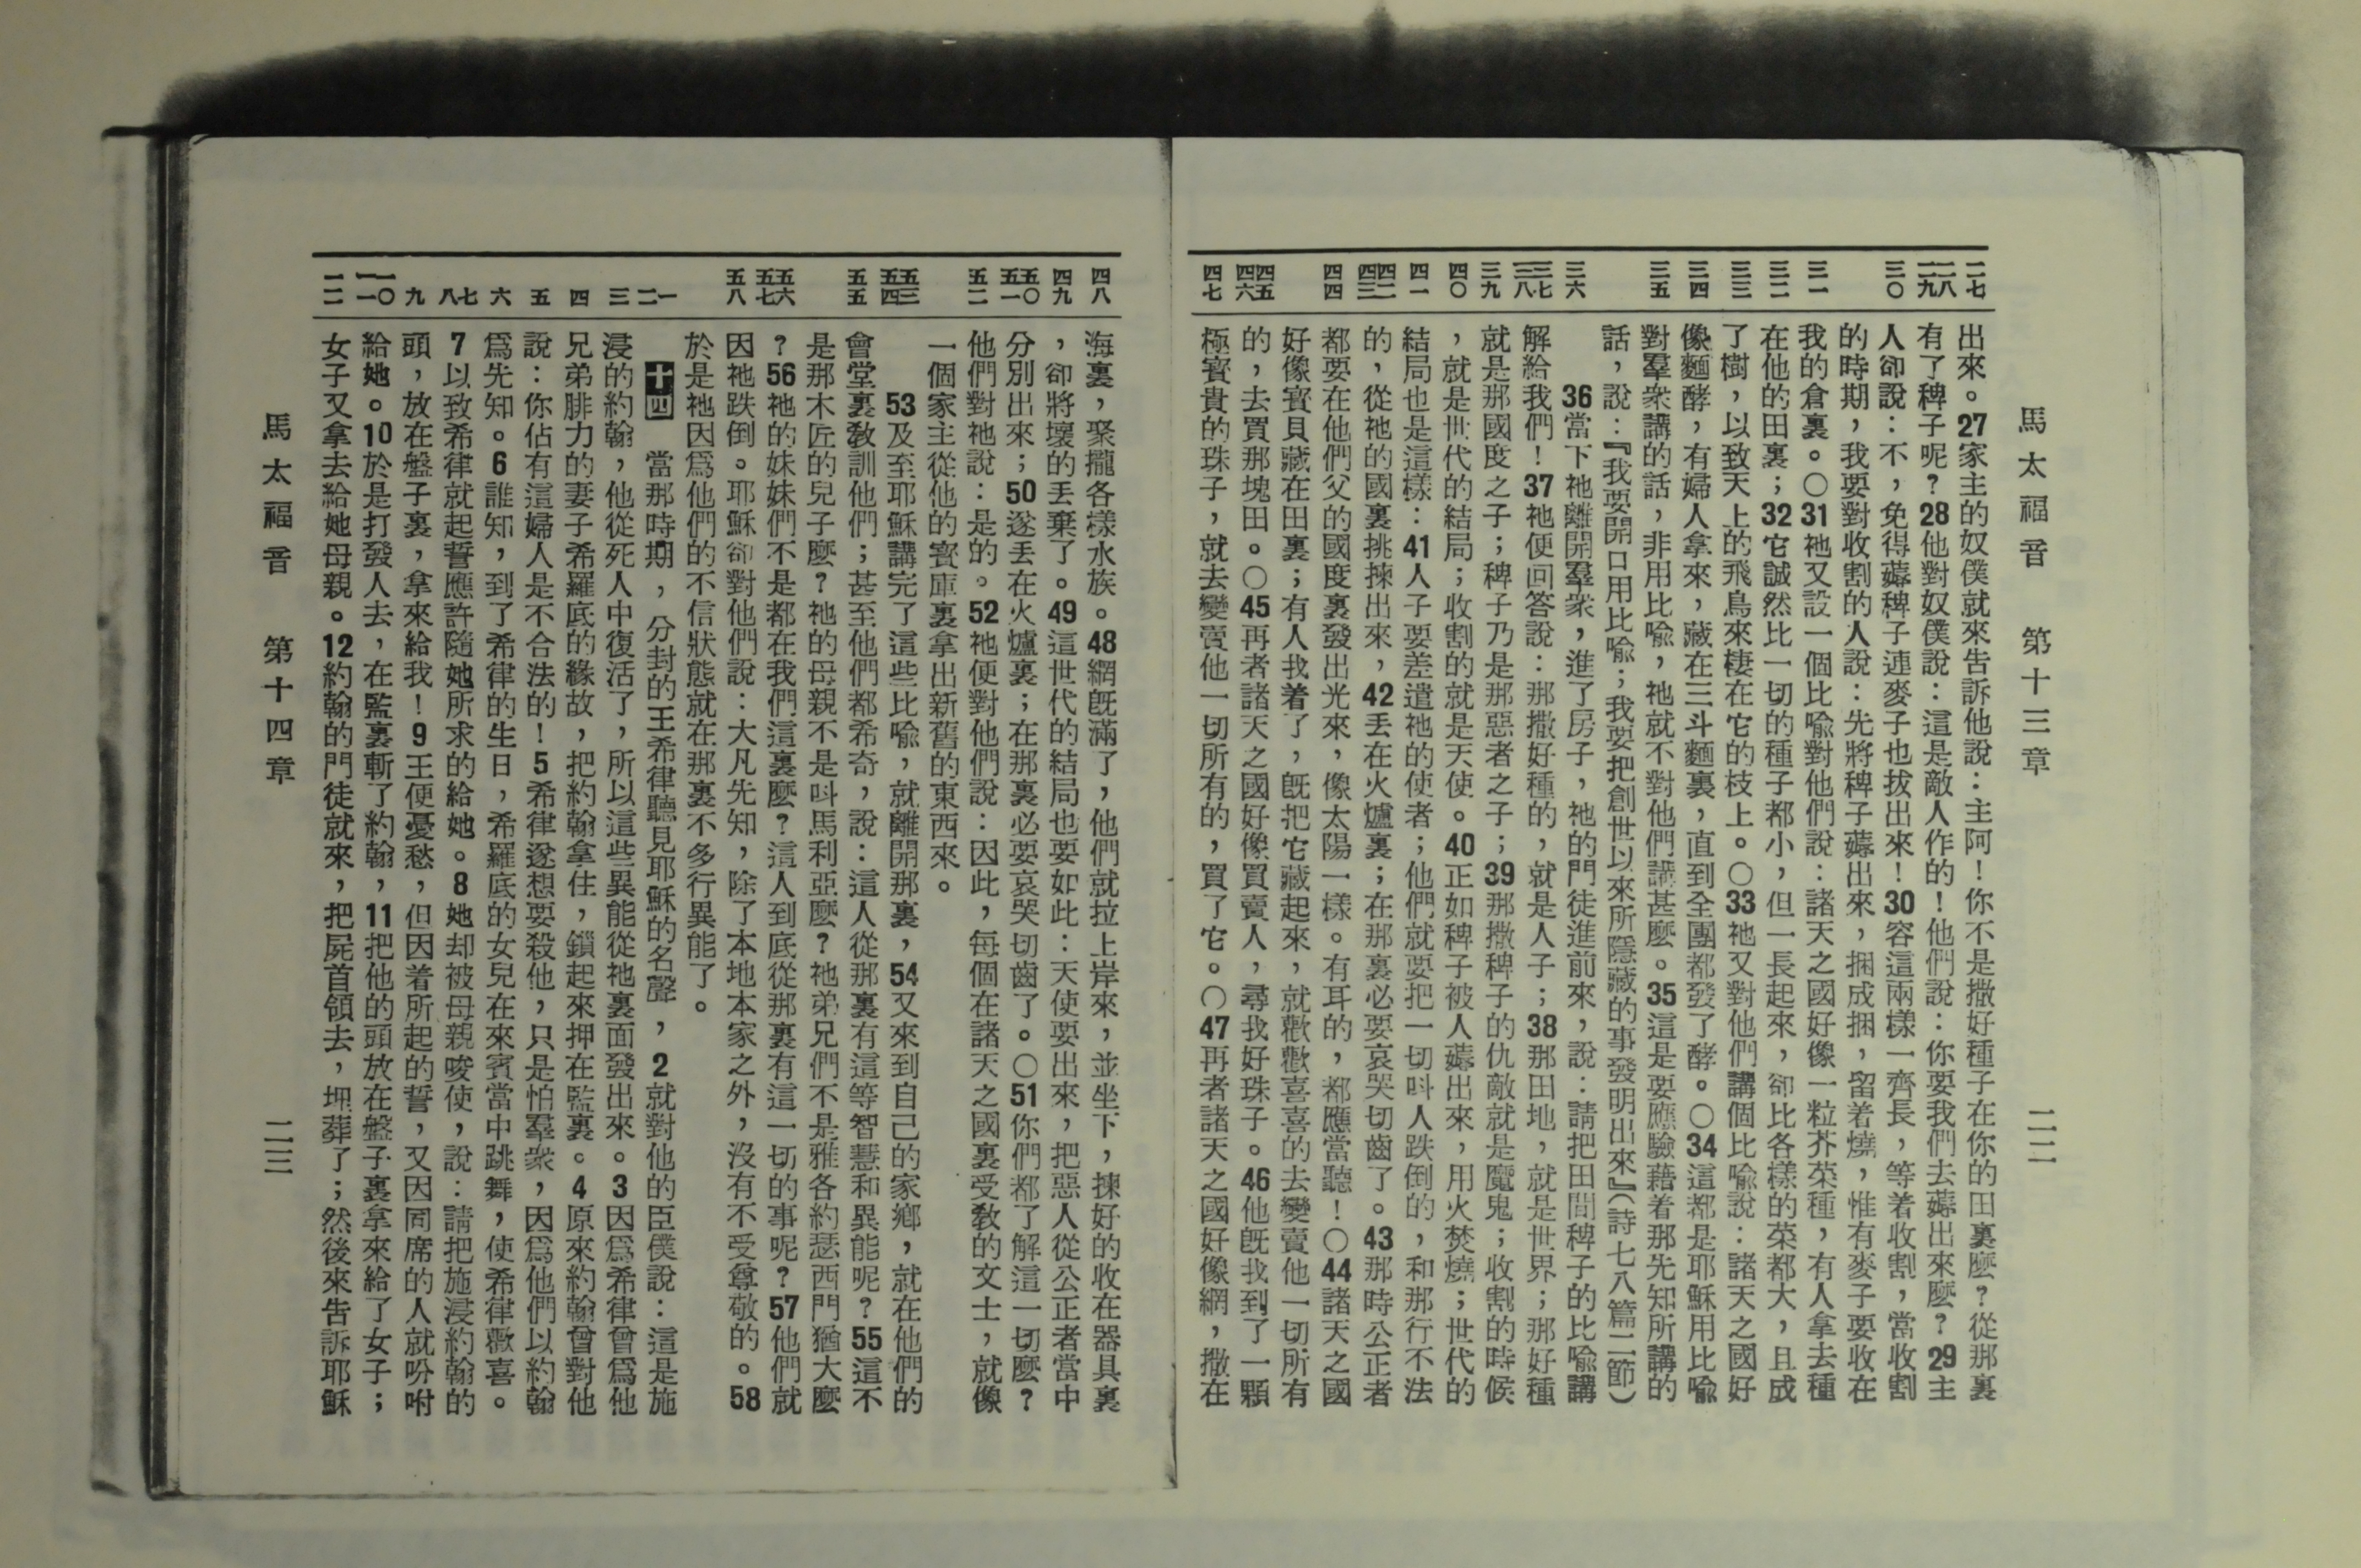 馬太福音　第十三章　二二
二七 二八 二九 三〇 三一 三二 三三 三四 三五 三六 三七 三八 三九 四〇 四一 四二 四三 四四 四五 四六 四七
出來。27家主的奴僕就來告訴他說：主阿！你不是撒好種子在你的田裏麼？從那裏
有了稗子呢？28他對奴僕說：這是敵人作的！他們說：你要我們去薅出來麼？29主
人卻說：不，免得薅稗子連麥子也拔出來！30容這兩樣一齊長，等着收割，當收割
的時期，我要對收割的人說：先將稗子薅出來，捆成捆，留着燒，惟有麥子要收在
我的倉裏。〇31祂又設一個比喻對他們說：諸天之國好像一粒芥菜種，有人拿去種
在他的田裏；32它誠然比一切的種子都小，但一長起來，卻比各樣的菜都大，且成
了樹，以致天上的飛鳥來棲在它的枝上。〇33祂又對他們講個比喻說：諸天之國好
像麵酵，有婦人拿來，藏在三斗麵裏，直到全團都發了酵。〇34這都是耶穌用比喻
對羣衆講的話，非用比喻，祂就不對他們講甚麼。35這是要應驗藉着那先知所講的
話，說：『我要開口用比喻；我要把創世以來所隱藏的事發明出來』（詩七八篇二節）
36當下祂離開羣衆，進了房子，祂的門徒進前來，說：請把田間稗子的比喻講
解給我們！37祂便回答說：那撒好種的，就是人子；38那田地，就是世界；那好種
就是那國度之子；稗子乃是那惡者之子；39那撒稗子的仇敵就是魔鬼；收割的時候
，就是世代的結局；收割的就是天使。40正如稗子被人薅出來，用火焚燒；世代的
結局也是這樣：41人子要差遣祂的使者；他們就要把一切叫人跌倒的，和那行不法
的，從祂的國裏挑揀出來，42丟在火爐裏；在那裏必要哀哭切齒了。43那時公正者
都要在他們父的國度裏發出光來，像太陽一樣。有耳的，都應當聽！〇44諸天之國
好像寶貝藏在田裏；有人找着了，旣把它藏起來，就歡歡喜喜的去變賣他一切所有
的，去買那塊田。〇45再者諸天之國好像買賣人，尋找好珠子。46他旣找到了一顆
極寶貴的珠子，就去變賣他一切所有的，買了它。〇47再者諸天之國好像網，撒在
四八 四九 五〇 五一 五二 五三 五四 五五 五六 五七 五八 一 二 三 四 五 六 七 八 九 一〇 一一 一二
海裏，聚攏各樣水族。48網旣滿了，他們就拉上岸來，並坐下，揀好的收在器具裏
，卻將壞的丟棄了。49這世代的結局也要如此：天使要出來，把惡人從公正者當中
分別出來；50遂丟在火爐裏；在那裏必要哀哭切齒了。〇51你們都了解這一切麼？
他們對祂說：是的。52祂便對他們說：因此，每個在諸天之國裏受敎的文士，就像
一個家主從他的寶庫裏拿出新舊的東西來。
53及至耶穌講完了這些比喻，就離開那裏，54又來到自己的家鄉，就在他們的
會堂裏敎訓他們；甚至他們都希奇，說：這人從那裏有這等智慧和異能呢？55這不
是那木匠的兒子麼？祂的母親不是叫馬利亞麼？祂弟兄們不是雅各約瑟西門猶大麼
？56祂的妹妹們不是都在我們這裏麼？這人到底從那裏有這一切的事呢？57他們就
因祂跌倒。耶穌卻對他們說：大凡先知，除了本地本家之外，沒有不受尊敬的。58
於是祂因爲他們的不信狀態就在那裏不多行異能了。
十四　當那時期，分封的王希律聽見耶穌的名聲，2就對他的臣僕說：這是施
浸的約翰，他從死人中復活了，所以這些異能從祂裏面發出來。3因爲希律曾爲他
兄弟腓力的妻子希羅底的緣故，把約翰拿住，鎖起來押在監裏。4原來約翰曾對他
說：你佔有這婦人是不合法的！5希律遂想要殺他，只是怕羣衆，因爲他們以約翰
爲先知。6誰知，到了希律的生日，希羅底的女兒在來賓當中跳舞，使希律歡喜。
7以致希律就起誓應許隨她所求的給她。8她却被母親唆使，說：請把施浸約翰的
頭，放在盤子裏，拿來給我！9王便憂愁，但因着所起的誓，又因同席的人就吩咐
給她。10於是打發人去，在監裏斬了約翰，11把他的頭放在盤子裏拿來給了女子；
女子又拿去給她母親。12約翰的門徒就來，把屍首領去，埋葬了；然後來告訴耶穌
馬太福音　第十四章　二三